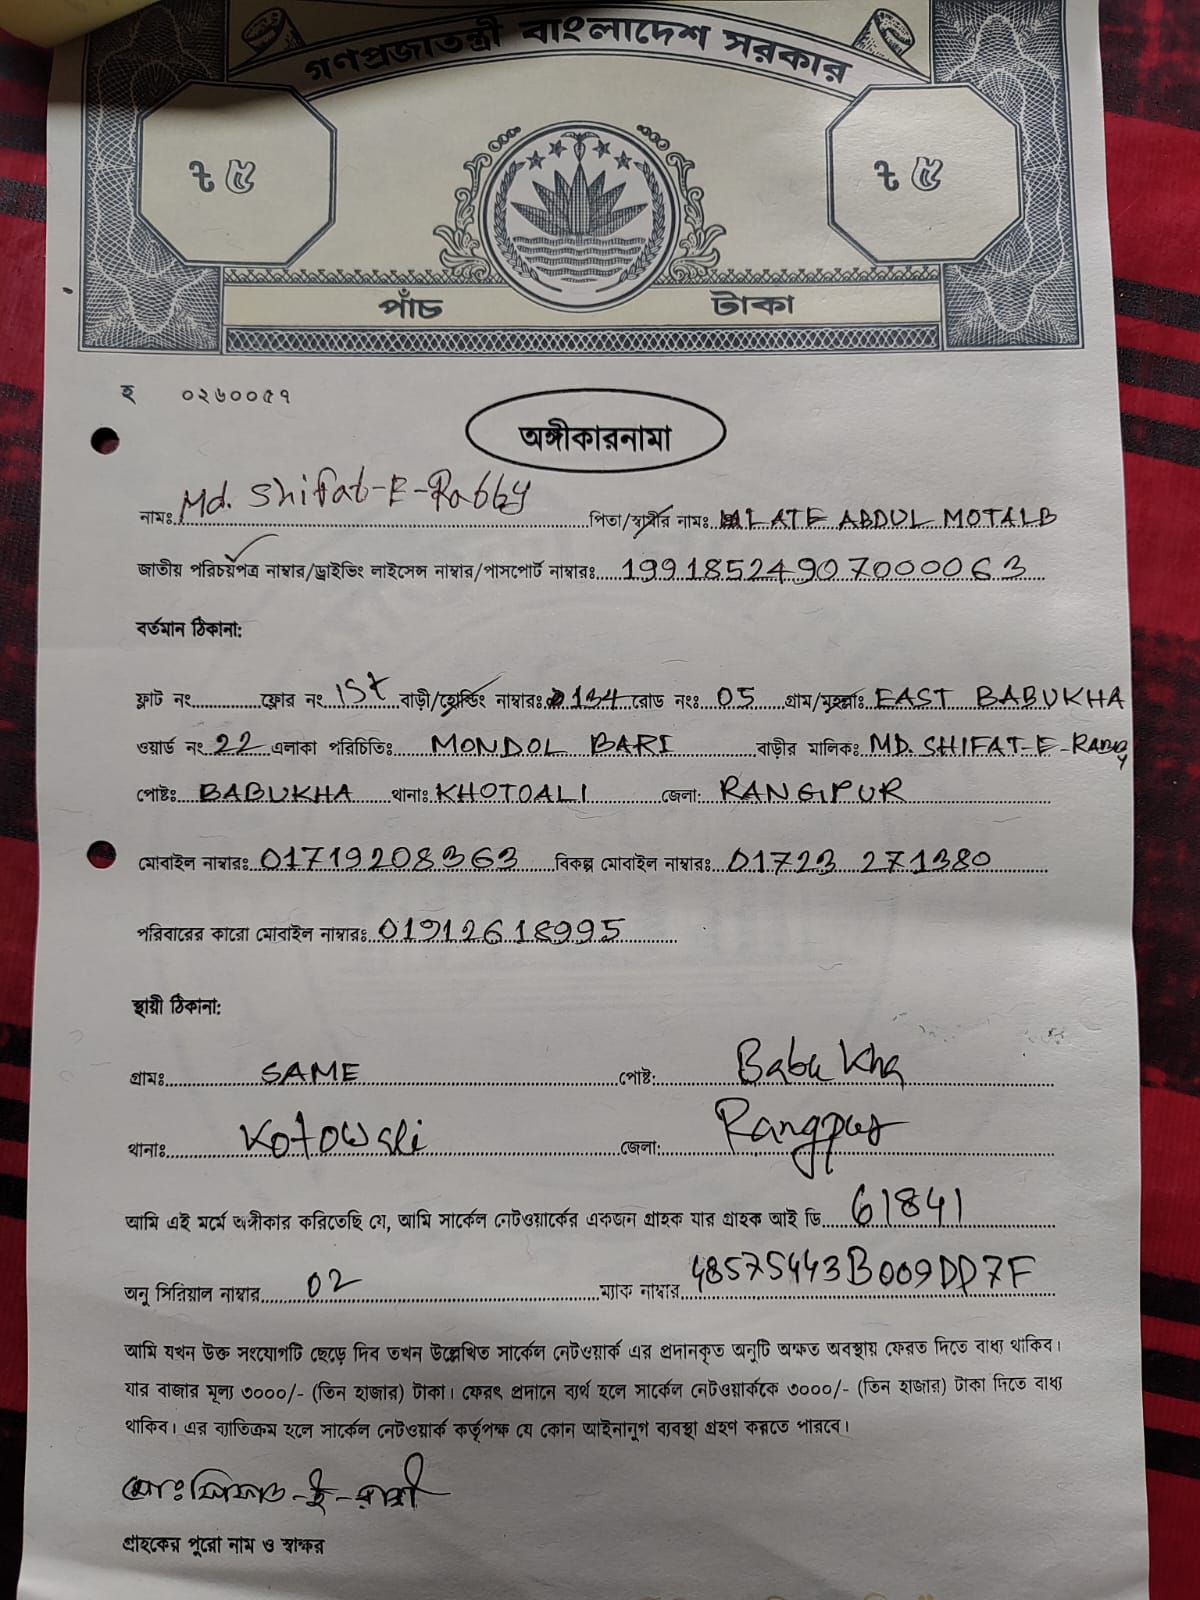 গণপ্রজাতন্ত্রী বাংলাদেশ সরকার
৳ ৫ ৳ ৫
পাঁচ টাকা
হ ০২৬০০৫৭
অঙ্গীকারনামা
নামঃ Md. Shifat-E-Rabby পিতা/স্বামীর নামঃ LATE ABDUL MOTALB
জাতীয় পরিচয়পত্র নাম্বার/ড্রাইভিং লাইসেন্স নাম্বার/পাসপোর্ট নাম্বারঃ 19918524907000063
বর্তমান ঠিকানা:
ফ্লাট নং ফ্লোর নং 1st বাড়ী/হোল্ডিং নাম্বারঃ 134 রোড নংঃ 05 গ্রাম/মহল্লাঃ EAST BABUKHA
ওয়ার্ড নং 22 এলাকা পরিচিতিঃ MONDOL BARI বাড়ীর মালিকঃ MD. SHIFAT-E-RABBY
পোষ্টঃ BABUKHA থানাঃ KHOTOALI জেলা: RANGPUR
মোবাইল নাম্বারঃ 01719208363 বিকল্প মোবাইল নাম্বারঃ 01723 271380
পরিবারের কারো মোবাইল নাম্বারঃ 01912618995
স্থায়ী ঠিকানা:
গ্রামঃ SAME পোষ্ট: Babu Kha
থানাঃ Kotowali জেলা: Rangpur
আমি এই মর্মে অঙ্গীকার করিতেছি যে, আমি সার্কেল নেটওয়ার্কের একজন গ্রাহক যার গ্রাহক আই ডি 61841
অনু সিরিয়াল নাম্বার 02 ম্যাক নাম্বার 48575443B009DD7F
আমি যখন উক্ত সংযোগটি ছেড়ে দিব তখন উল্লেখিত সার্কেল নেটওয়ার্ক এর প্রদানকৃত অনুটি অক্ষত অবস্থায় ফেরত দিতে বাধ্য থাকিব।
যার বাজার মূল্য ৩০০০/- (তিন হাজার) টাকা। ফেরৎ প্রদানে ব্যর্থ হলে সার্কেল নেটওয়ার্ককে ৩০০০/- (তিন হাজার) টাকা দিতে বাধ্য
থাকিব। এর ব্যতিক্রম হলে সার্কেল নেটওয়ার্ক কর্তৃপক্ষ যে কোন আইনানুগ ব্যবস্থা গ্রহণ করতে পারবে।
মোঃ সিফাত-ই-রাব্বী
গ্রাহকের পুরো নাম ও স্বাক্ষর